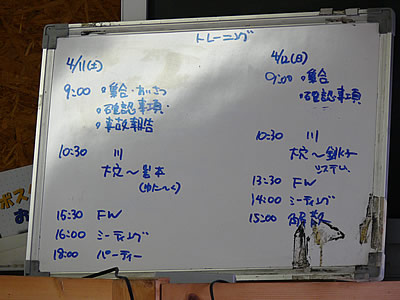 トレーニング
4/11(土)
9:00 ◦集合・あいさつ
◦確認事項・
◦事故報告
10:30 川
大穴〜岩本
15:30 FW
16:00 ミーティング
18:00 パーティー
4/12(日)
9:00 ◦集合
◦確認事項
10:30 川
大穴〜銚子
システム
13:30 FW
14:00 ミーティング
15:00 解散
ポス
お